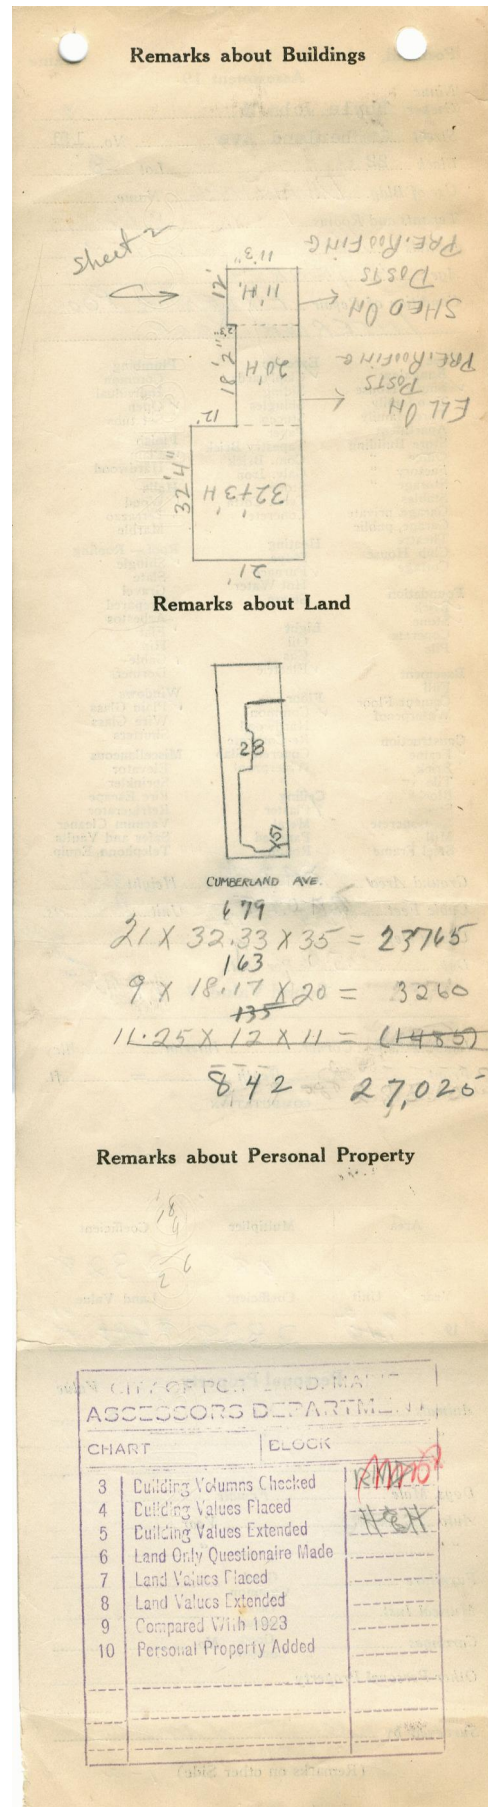 Remarks about Buildings
Sheet 2
11'3"
12'
11'H.
SHED ON
POSTS
PRE. ROOFING
18'2"
20'H
ELL ON
POSTS
PRE. ROOFING
12'
32'4"
32'+3'H
21'
Remarks about Land
28
157
CUMBERLAND AVE.
679
21 X 32.33 X 35 = 23765
163
9 X 18.17 X 20 = 3260
135
11.25 X 12 X 11 = (1485)
842 27,025
Remarks about Personal Property
CITY OF PORTLAND, MAINE
ASSESSORS DEPARTMENT
CHART BLOCK
3 Building Volumes Checked
4 Building Values Placed
5 Building Values Extended
6 Land Only Questionaire Made
7 Land Values Placed
8 Land Values Extended
9 Compared With 1923
10 Personal Property Added